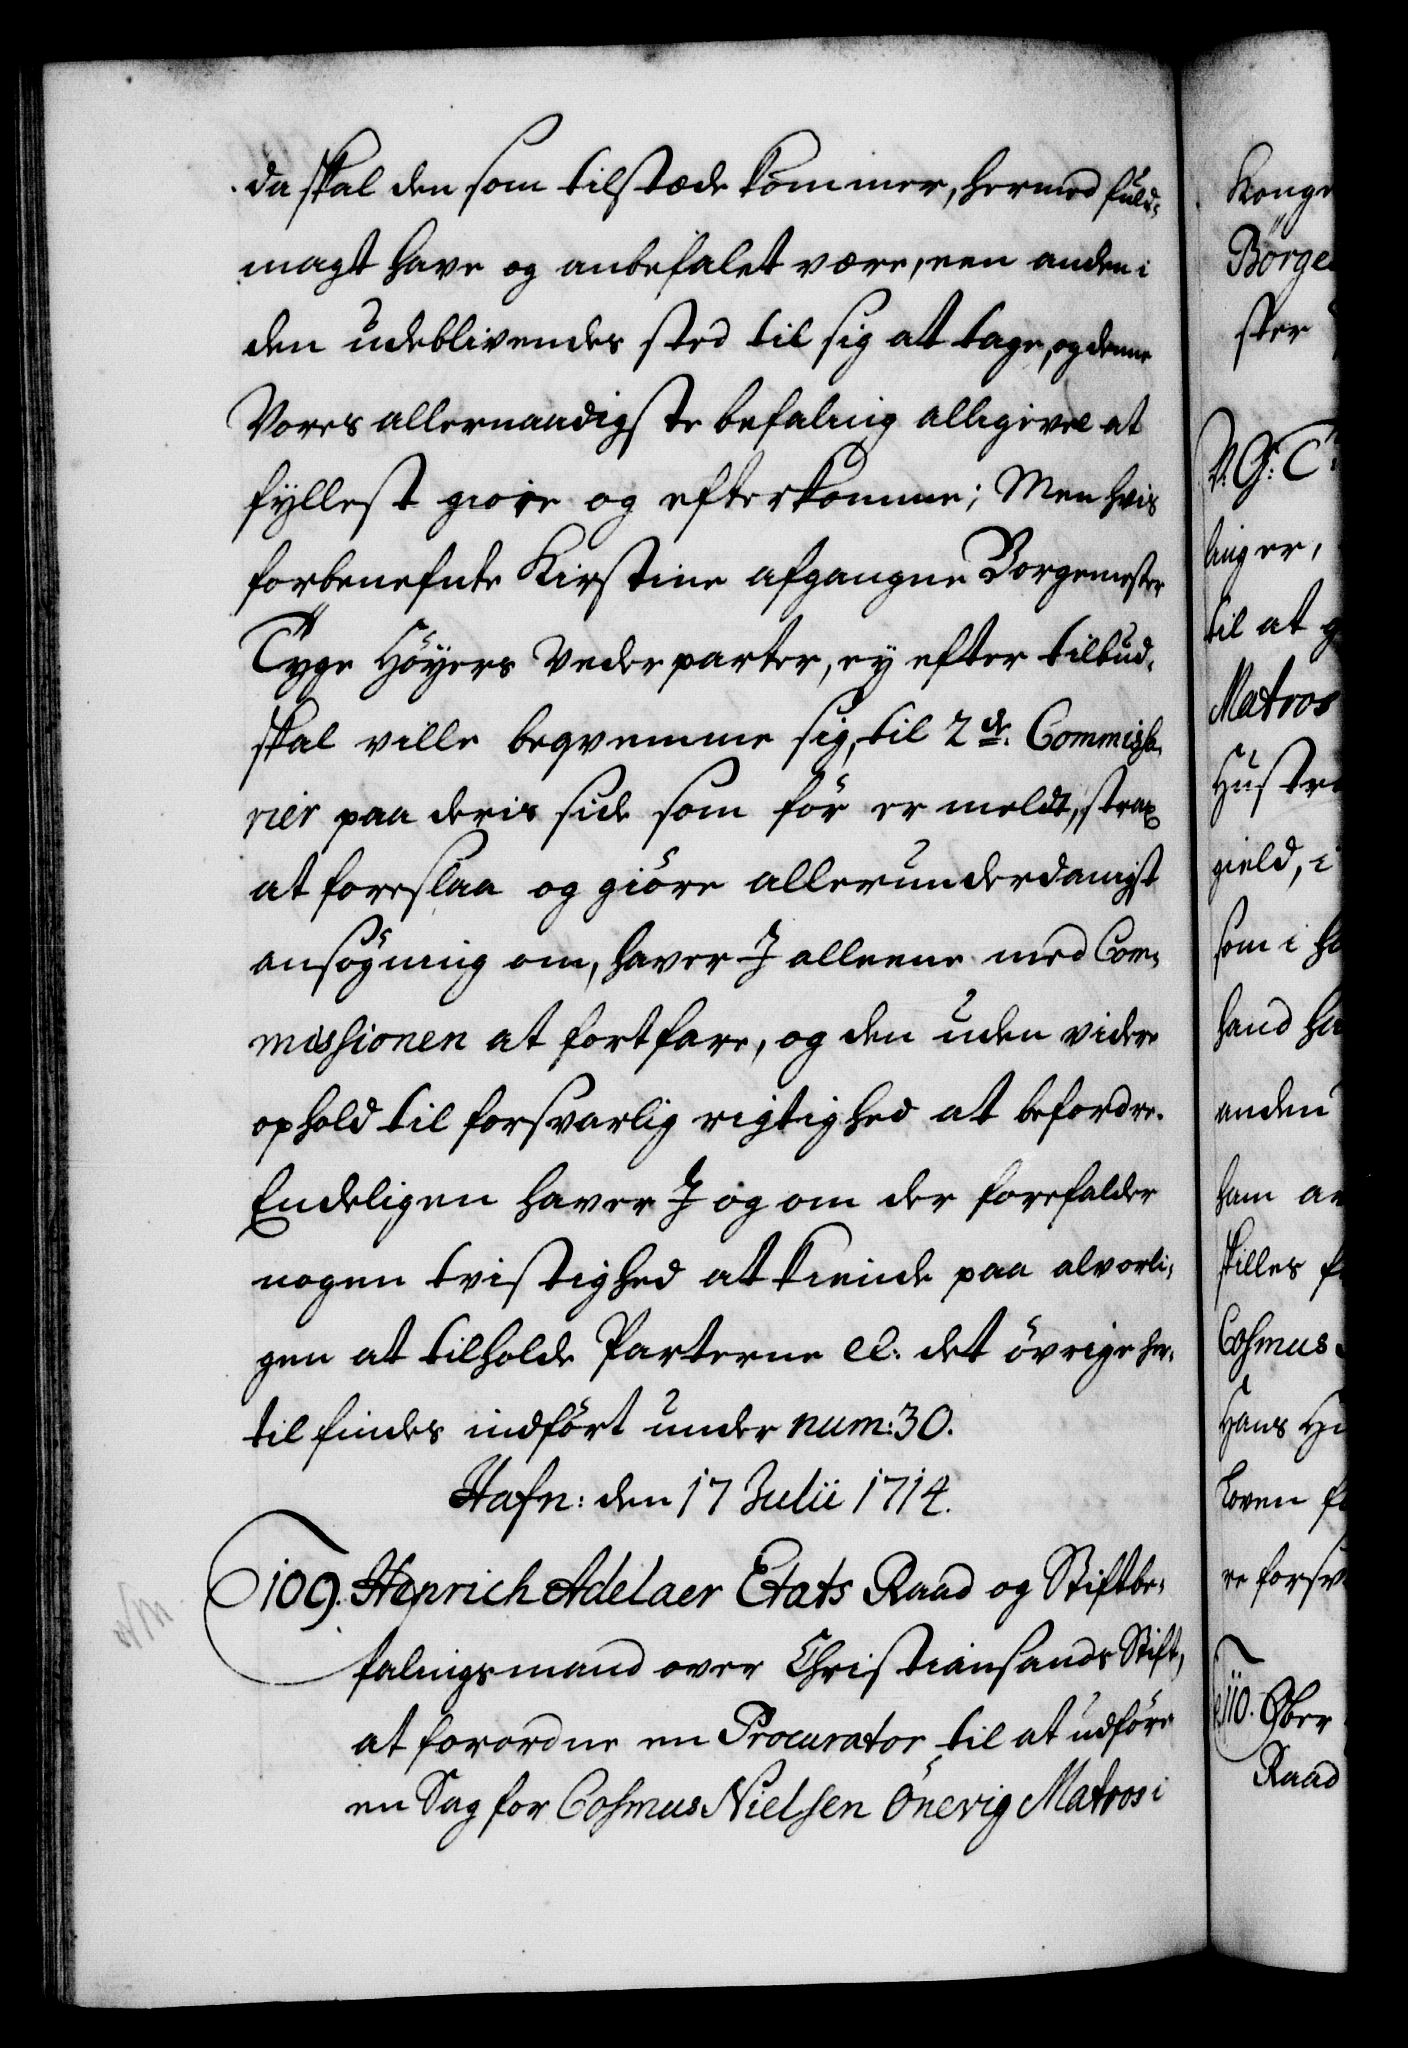 da skal den som tilstæde kommer, hermed fuld-
magt have og anbefalet være, een anden i
den udeblivendes sted til sig att tage, og denne
Vores allernaadigste befaling alligevel at
fyllest giøre og efterkomme; Men hvis
forbenefnte Kirstine afgangne Borgemester
Tyge Höyers Vederparter, ey efter tilbud,
skal ville beqvemme sig, til 2de. Commissa-
rier paa deris side som för er meldt, strax
at foreslaa og giöre allerunderdanigst
ansögning om, haver I alleene med Com-
missionen at fortfare, og den uden videre
ophold til forsvarlig rigtighed at befordre.
Endeligen haver I og om der forefalder
nogen tvistighed at kiende paa alvorli-
gen at tilholde Parterne &c. det övrige her-
til findes indfört under num: 30.
Hafn: den 17 Julii 1714.
109. Henrich Adelaer Etats Raad og Stiftbe-
falingsmand over Christiansands Stift,
at forordne en Procurator til at udföre
en Sag for Cosmus Nielsen Önevig Matros i
Konge
Börge
ster
V. G: T:
linger,
til at g
Matros
Hustr
gield, i
som i ha
hand ha
anden
ham an
stilles f
Cosmus
Hans Hu
Loven f
re forsv
110. Ober
Raad